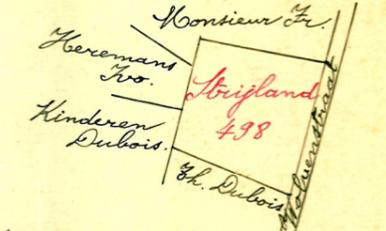 Monsieur Fr.
Heremans
Ivo.
Strijland
498
Kinderen
Dubois.
Th. Dubois
Wolvenstraat